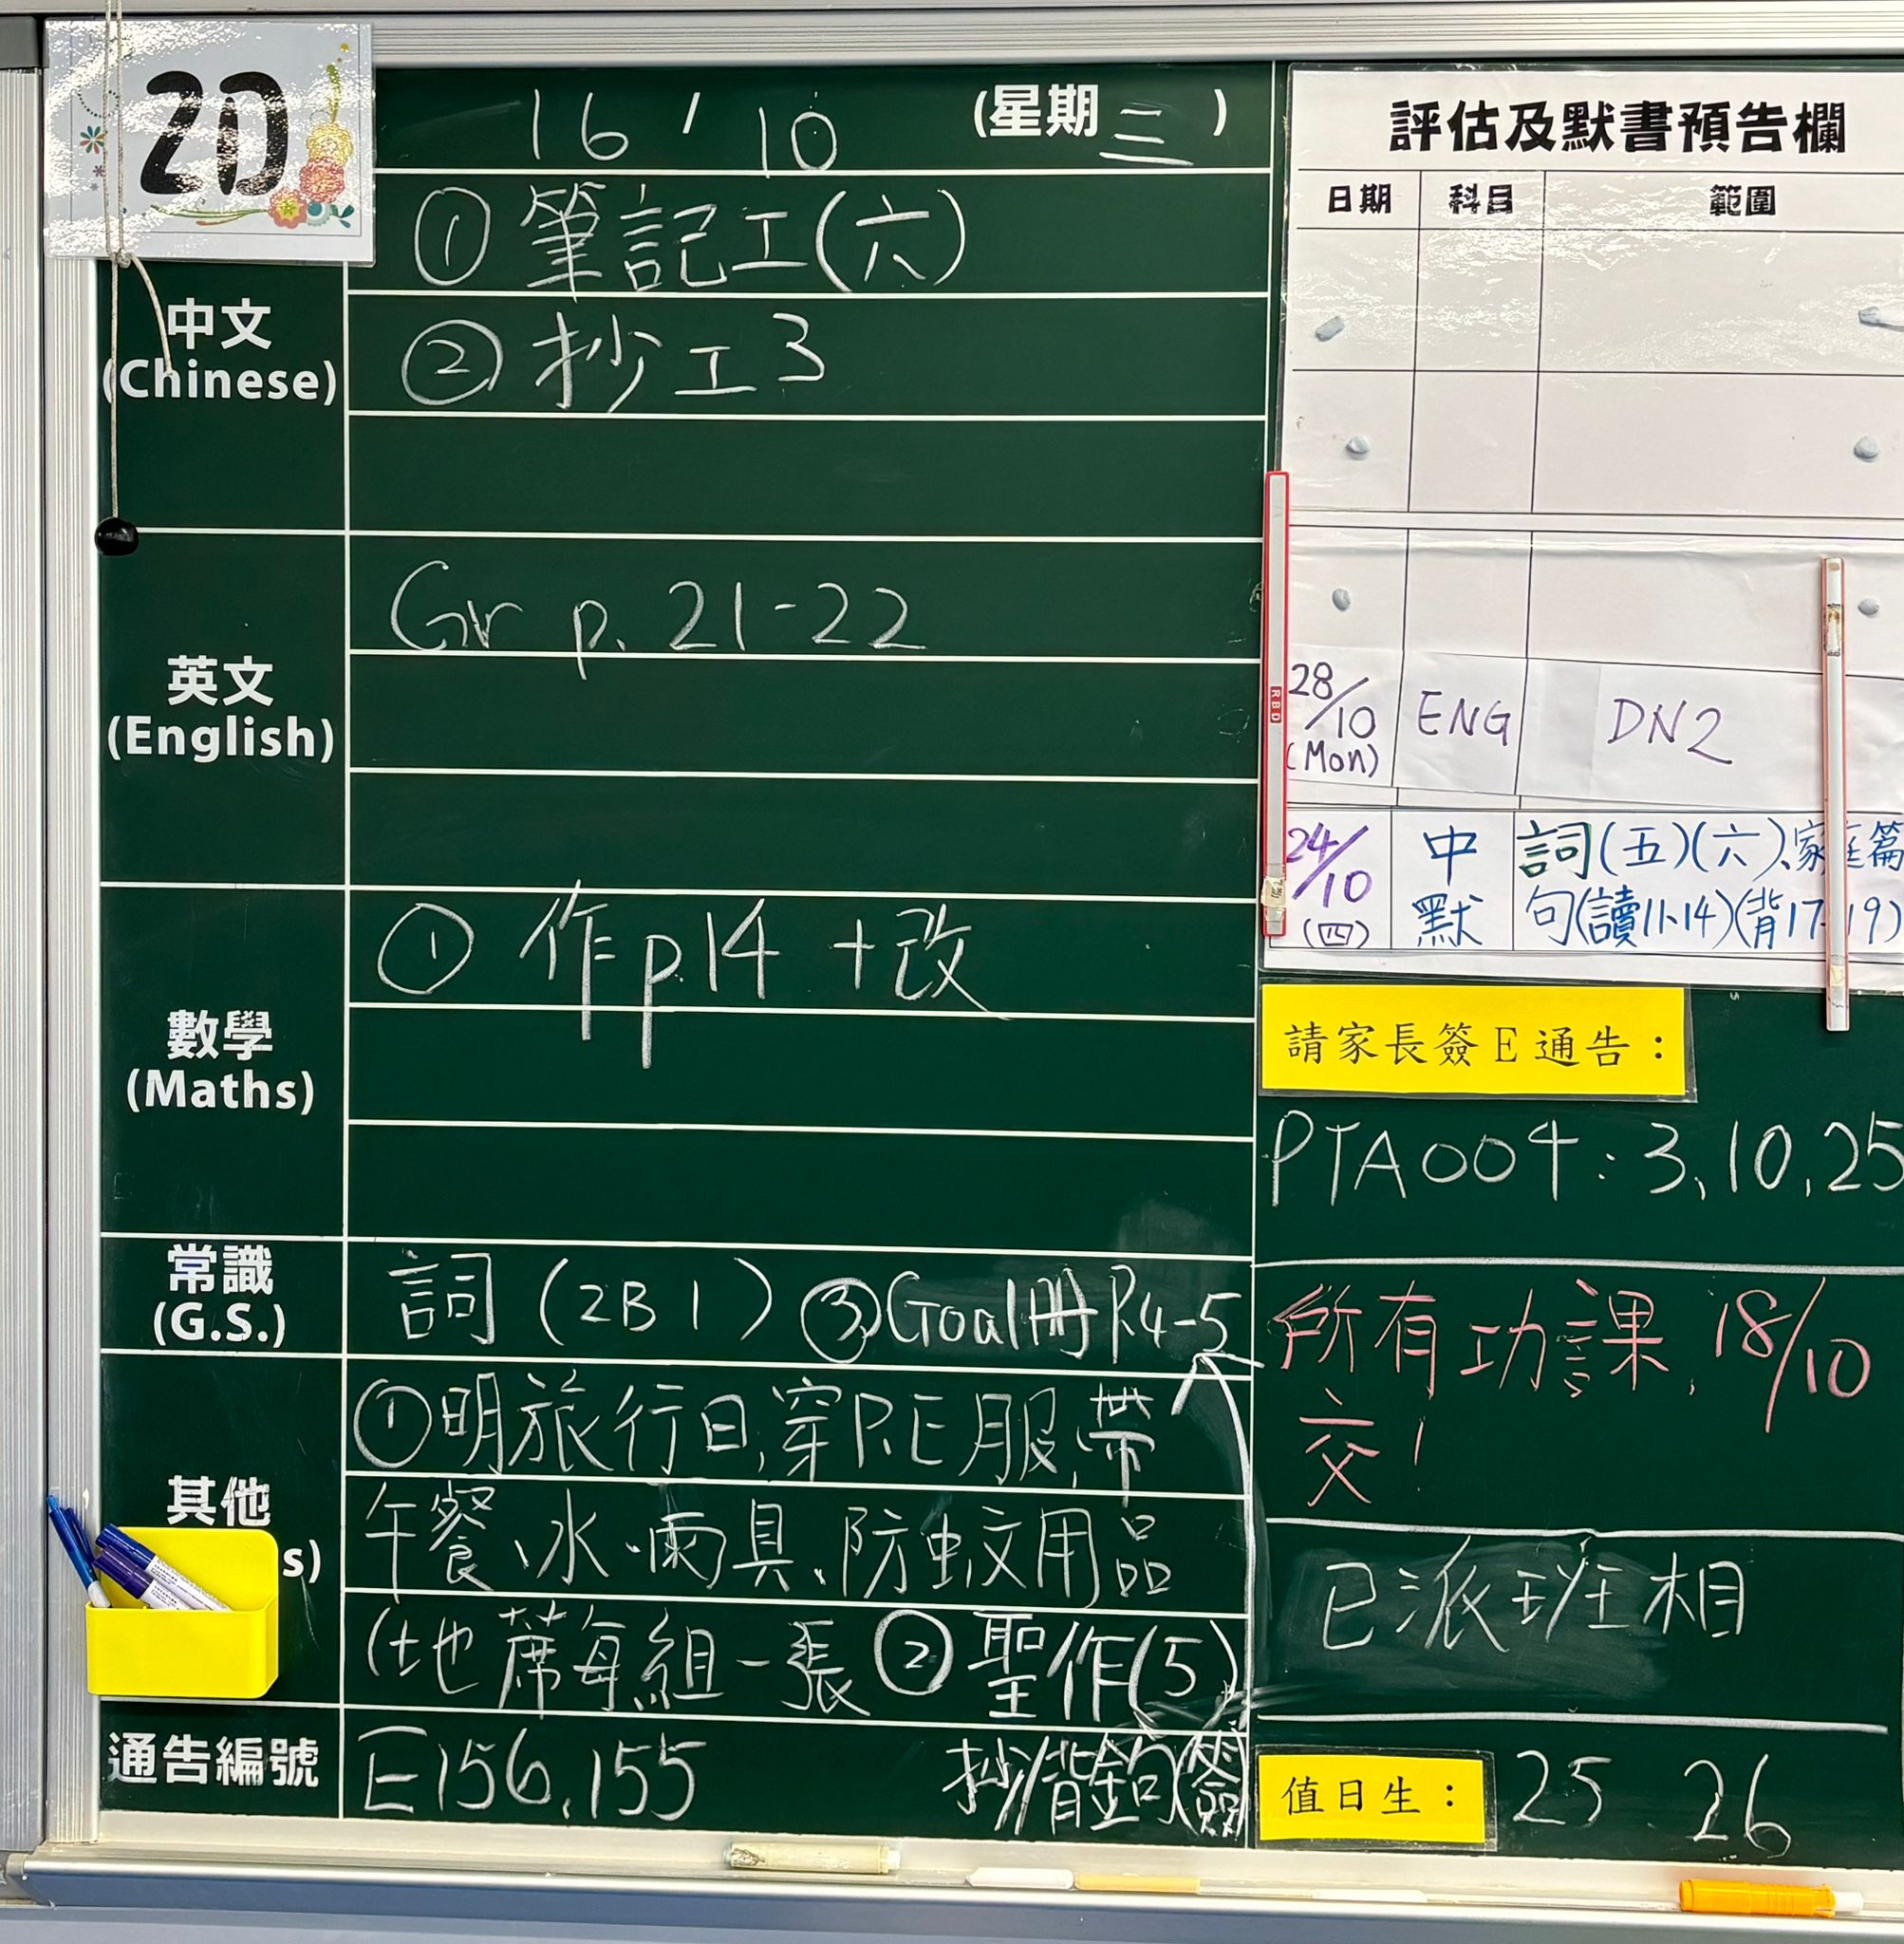 2D
16/10 (星期三)
中文
(Chinese)
① 筆記工(六)
② 抄工3
英文
(English)
Gr p. 21-22
數學
(Maths)
① 作p14 +改
常識
(G.S.)
詞(2B1) ③Goal冊P.4-5
其他
s)
①明旅行日,穿P.E服,帶
午餐、水、雨具、防蚊用品
(地蓆每組一張 ②聖作(5)
抄/背金句(簽
通告編號
E156,155
評估及默書預告欄
日期 科目 範圍
28/10 (Mon) ENG DN2
24/10 (四) 中默 詞(五)(六)、家庭篇
句(讀11-14)(背17-19)
請家長簽E通告：
PTA004：3,10,25
所有功課,18/10
交!
已派班相
值日生： 25 26
RBD